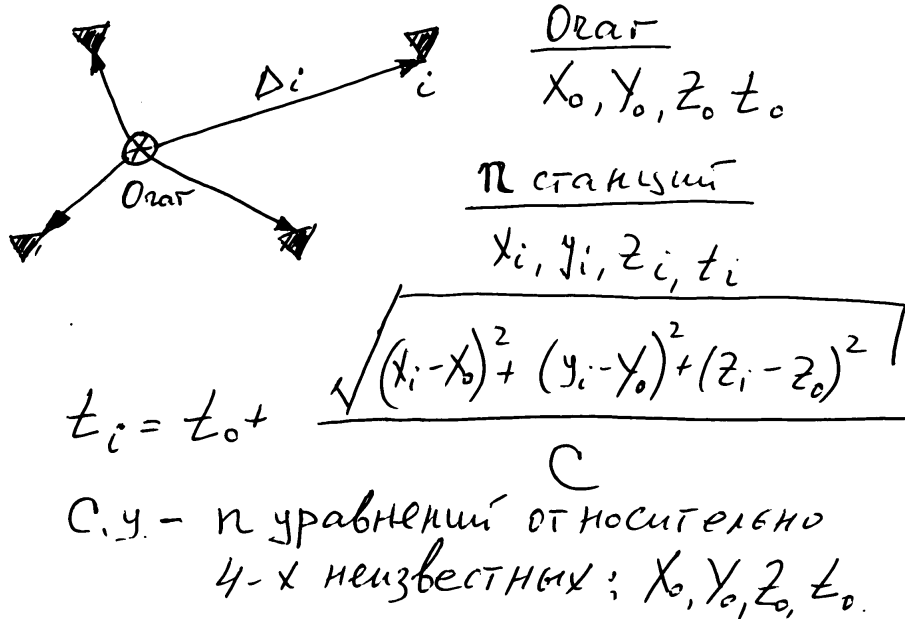 Очаг
X₀, Y₀, Z₀ t₀
Δi
i
Очаг
n станций
xi, yi, zi, ti
ti = t₀ + √((xi - X₀)² + (yi - Y₀)² + (zi - Z₀)²) / C
С.у - n уравнений относительно
4-х неизвестных: X₀, Y₀, Z₀, t₀.